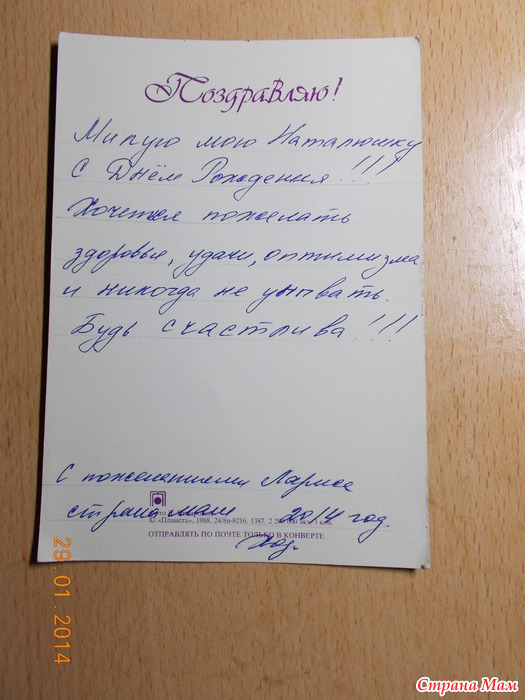 Поздравляю!
Милую мою Наталюшку
С Днём Рождения!!!
Хочется пожелать
здоровья, удачи, оптимизма
и никогда не унывать.
Будь счастлива!!!
С пожеланиями Лариса
страна мам 2014 год.
© «Планета», 1988. 24/8п-8216. 1387. 2 200 000 экз. 3 коп.
ОТПРАВЛЯТЬ ПО ПОЧТЕ ТОЛЬКО В КОНВЕРТЕ
29.01.2014
Страна Мам